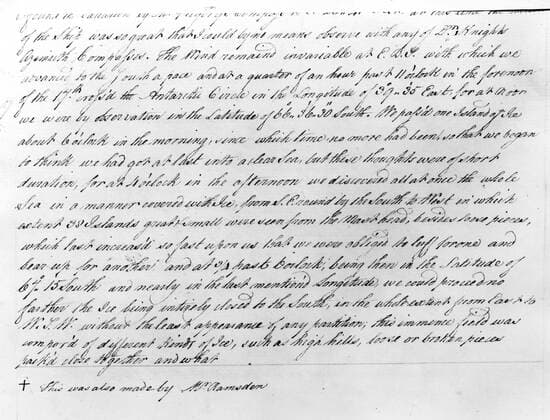 of the Ship was so great that I could by no means observe with any of Dr. Knights
Azimuth Compasses. The Wind remained invariable at E.B.S. with which we
advance to the South a pace and at a quarter of an hour past 11 o'clock in the forenoon
of the 17th cross'd the Antarctic Circle in the Longitude of 39°-35' East, for at Noon
we were by observation in the Latitude of 66°-36'-30" South. We pass'd one Island of Ice
about 6 o'clock in the morning, since which time no more had been, so that we began
to think we had got at last into a clear Sea, but these thoughts were of short
duration, for at 4 o'clock in the afternoon we discovered all at once the whole
Sea in a manner covered with Ice, from S.E. round by the South to West in which
extent 38 Islands great & small were seen from the Mast head, besides loose pieces,
which last increased so fast upon us that we were obliged to luff for one and
bear up for another and at 3/4 past 6 o'clock, being then in the Latitude of
67°.15' South and nearly in the last mentioned Longitude, we could proceed no
farther, the Ice being intirely closed to the South, in the whole extent from East to
W.S.W. without the least appearance of any partition, this immence field was
compos'd of different kinds of Ice, such as high hills, loose or broken pieces
pack'd close together and what
+ This was also made by Mr. Ramsden